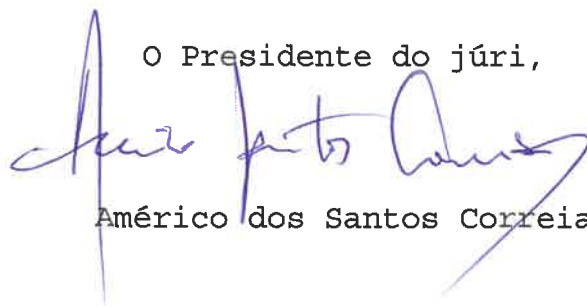 O Presidente do júri,
Américo dos Santos Correia